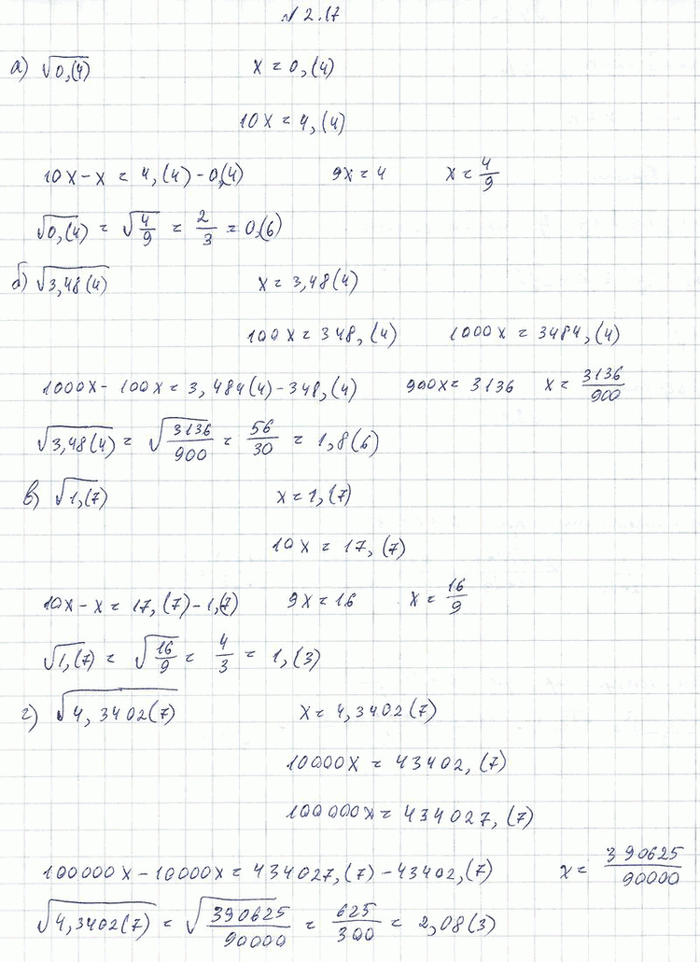 № 2.17
а) √0,(4) x = 0,(4)
10x = 4,(4)
10x - x = 4,(4) - 0,(4) 9x = 4 x = 4/9
√0,(4) = √4/9 = 2/3 = 0,(6)
б) √3,48(4) x = 3,48(4)
100x = 348,(4) 1000x = 3484,(4)
1000x - 100x = 3,484(4) - 348,(4) 900x = 3136 x = 3136/900
√3,48(4) = √3136/900 = 56/30 = 1,8(6)
в) √1,(7) x = 1,(7)
10x = 17,(7)
10x - x = 17,(7) - 1,(7) 9x = 16 x = 16/9
√1,(7) = √16/9 = 4/3 = 1,(3)
г) √4,3402(7) x = 4,3402(7)
10000x = 43402,(7)
100000x = 434027,(7)
100000x - 10000x = 434027,(7) - 43402,(7) x = 390625/90000
√4,3402(7) = √390625/90000 = 625/300 = 2,08(3)